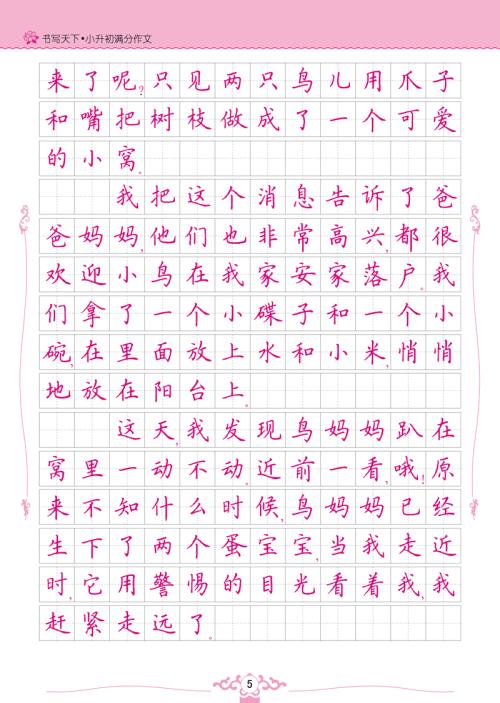 书写天下•小升初满分作文
来了呢?只见两只鸟儿用爪子
和嘴把树枝做成了一个可爱
的小窝。
我把这个消息告诉了爸
爸妈妈,他们也非常高兴,都很
欢迎小鸟在我家安家落户。我
们拿了一个小碟子和一个小
碗,在里面放上水和小米,悄悄
地放在阳台上。
这天,我发现鸟妈妈趴在
窝里一动不动。近前一看,哦!原
来不知什么时候,鸟妈妈已经
生下了两个蛋宝宝,当我走近
时,它用警惕的目光看着我,我
赶紧走远了。
5